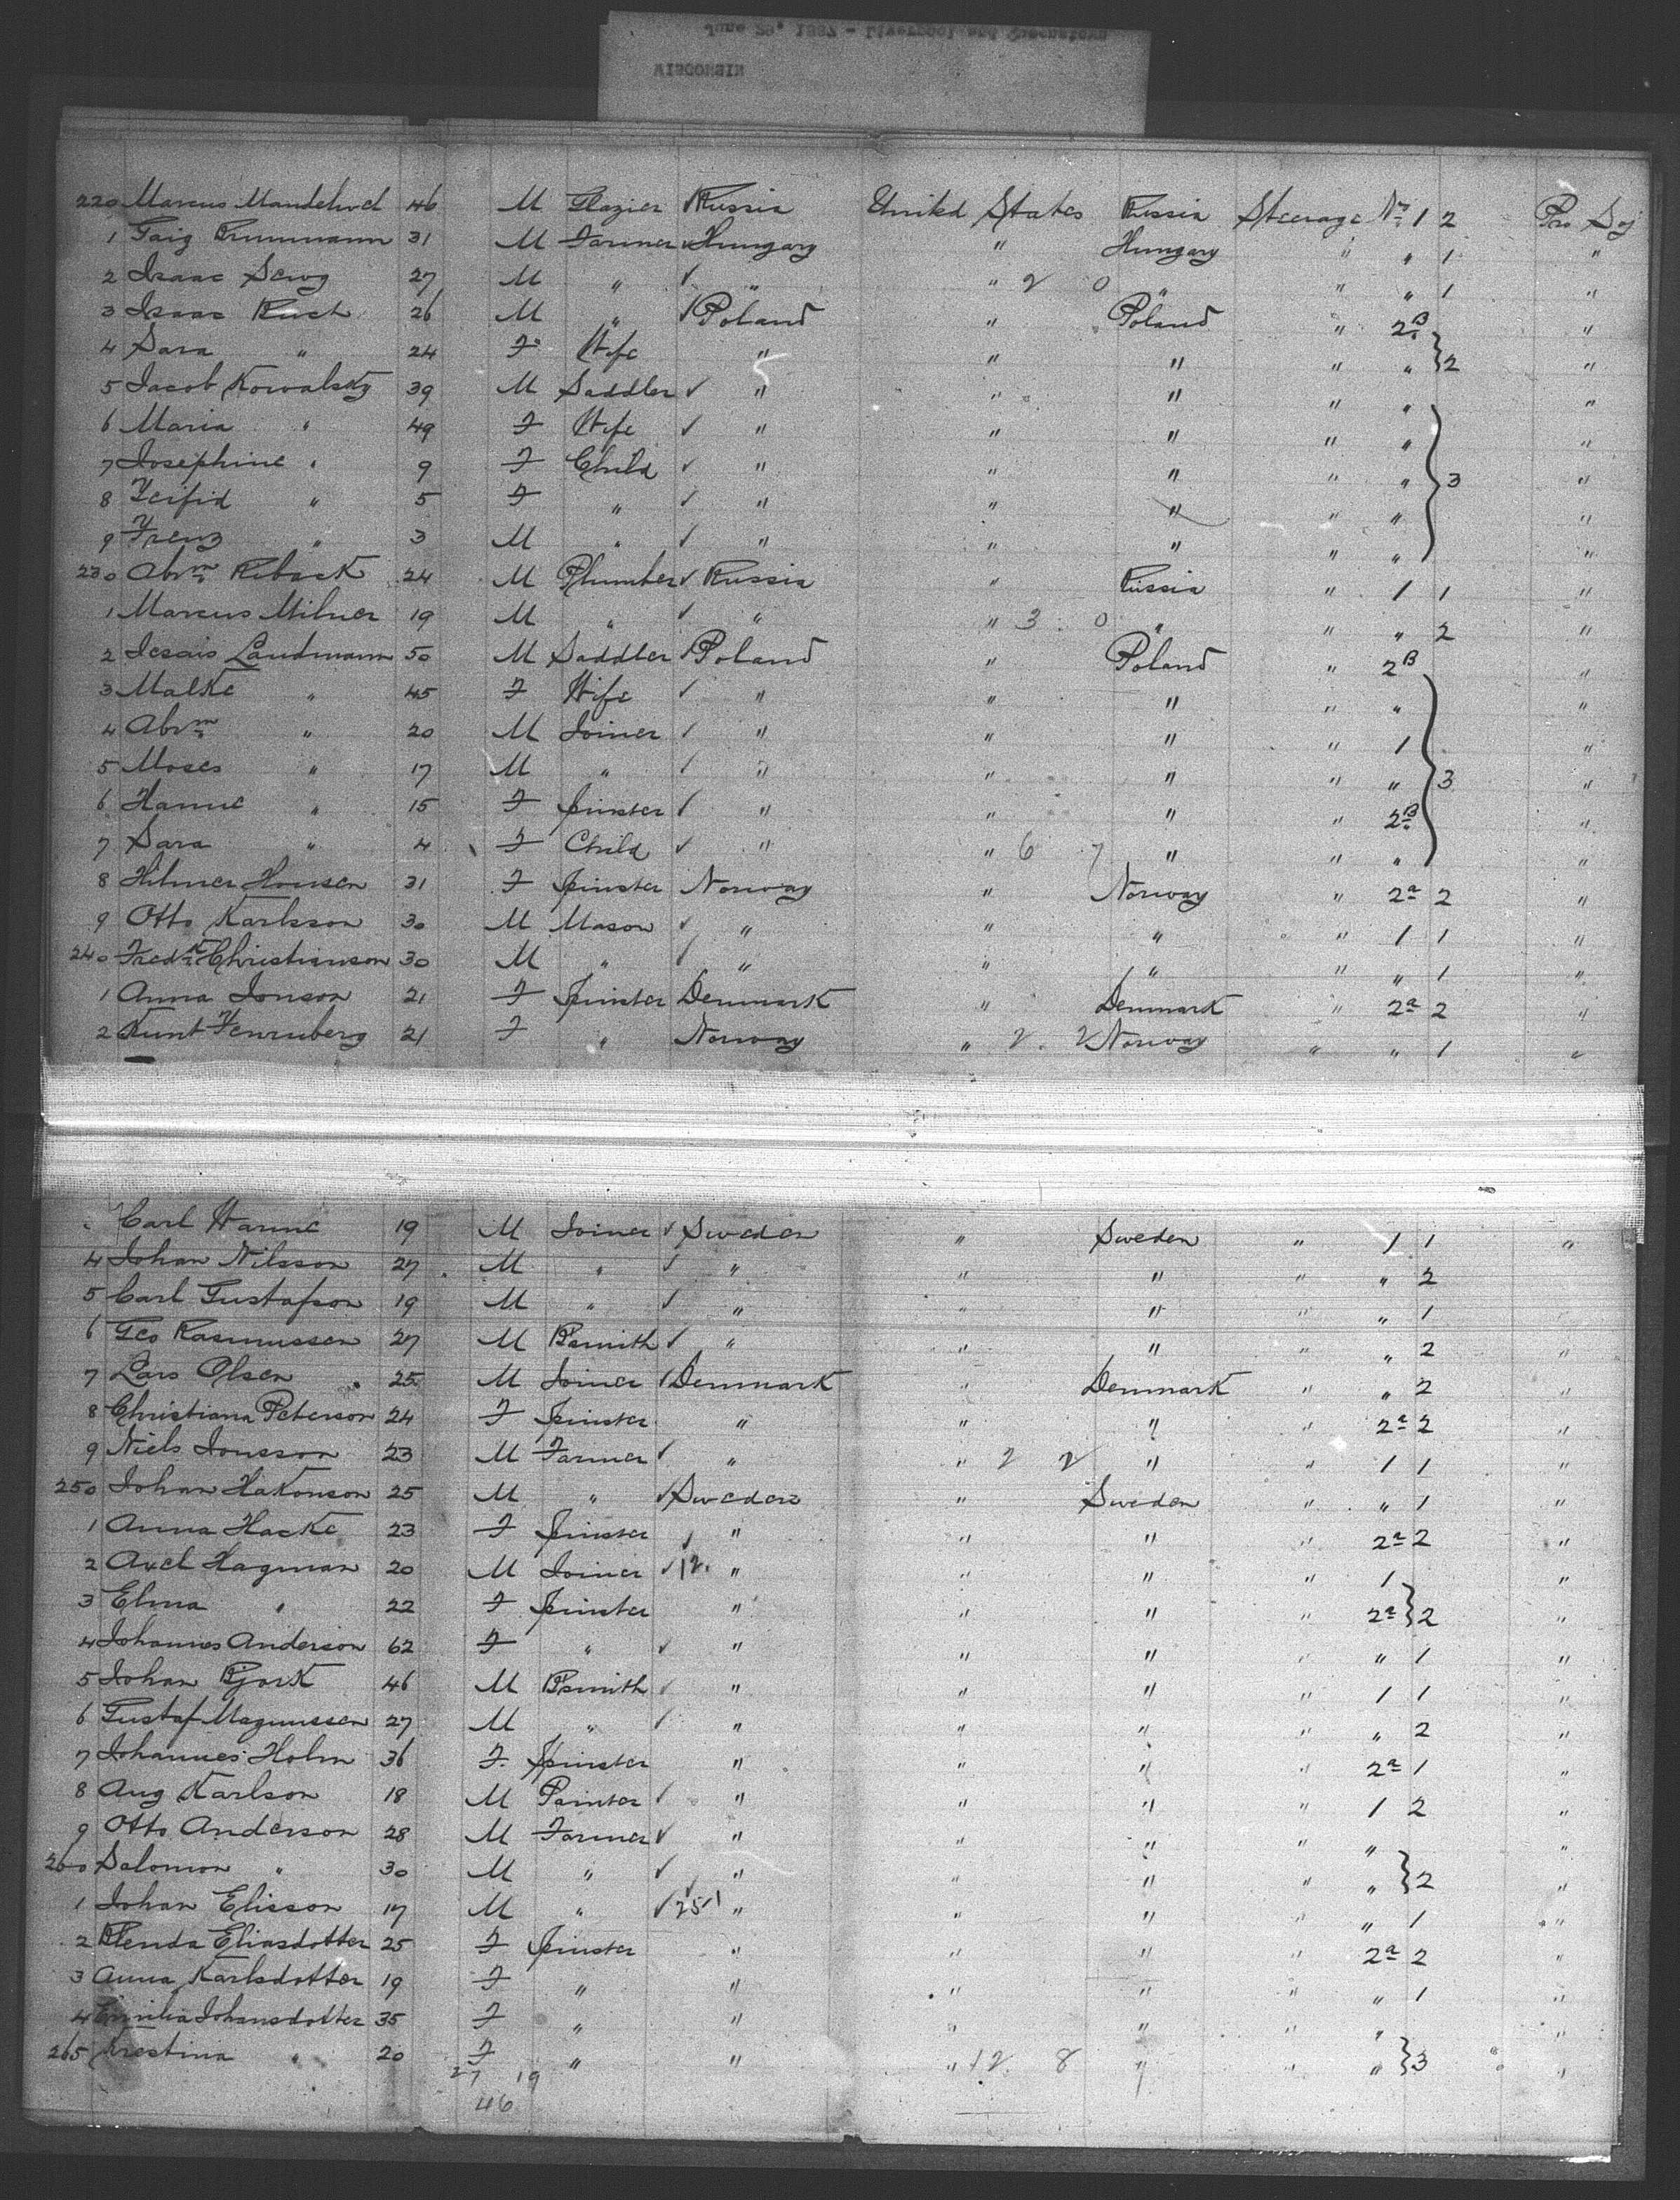 June 29, 1887 - Liverpool and Queenstown
WISCONSIN
220 Marcus 46 M Glazier Russia United States Russia Steerage No 1 2
1 31 M Farmer Hungary " Hungary " " 1 "
2 Isaac 27 M " " " 2 0 " " " 1 "
3 Isaac 26 M " Poland " Poland " 2B "
4 Sara " 24 F Wife " " " " " 2 "
5 Jacob Kowalsky 39 M Saddler " " " " " "
6 Maria " 49 F Wife " " " " " "
7 Josephine " 9 F Child " " " " " 3 "
8 " 5 F " " " " " " "
9 " 3 M " " " " " " "
230 Abrm Reback 24 M Plumber Russia " Russia " 1 1 "
1 Marcus Milner 19 M " " " 3 0 " " " 2 "
2 Landmann 50 M Saddler Poland " Poland " 2B "
3 Malke " 45 F Wife " " " " " "
4 Abrm " 20 M Joiner " " " " 1 "
5 Moses " 17 M " " " " " " 3 "
6 Hanne " 15 F Spinster " " " " 2B "
7 Sara " 4 F Child " " 6 7 " " " "
8 31 F Spinster Norway " Norway " 2a 2 "
9 Otto Karlsson 30 M Mason " " " " 1 1 "
240 Fredk Christianson 30 M " " " " " " 1 "
1 Anna Jonson 21 F Spinster Denmark " Denmark " 2a 2 "
2 21 F " Norway " 2 2 Norway " " 1 "
Carl Hanne 19 M Joiner Sweden " Sweden " 1 1 "
4 Johan Nilsson 27 M " " " " " " 2 "
5 Carl Gustafson 19 M " " " " " " 1 "
6 Geo Rasmussen 27 M Bsmith " " " " " 2 "
7 Lars Olsen 25 M Joiner Denmark " Denmark " " 2 "
8 Christiana Peterson 24 F Spinster " " " " 2a 2 "
9 Niels Jonsson 23 M Farmer " " 2 2 " " 1 1 "
250 Johan Hakonson 25 M " Sweden " Sweden " " 1 "
1 Anna Hacke 23 F Spinster " " " " 2a 2 "
2 Axel Hagman 20 M Joiner 12 " " " " 1 "
3 Elma " 22 F Spinster " " " " 2a 2 "
4 Johannes Anderson 62 F " " " " " " 1 "
5 Johan Bjork 46 M Bsmith " " " " 1 1 "
6 Gustaf Magnussen 27 M " " " " " " 2 "
7 Johannes Holm 36 F Spinster " " " " 2a 1 "
8 Aug Karlson 18 M Painter " " " " 1 2 "
9 Otto Anderson 28 M Farmer " " " " " "
260 Salomon " 30 M " " " " " " 2 "
1 Johan Elisson 17 M " 251 " " " " " 1 "
2 Blenda Eliasdotter 25 F Spinster " " " " 2a 2 "
3 Anna Karlsdotter 19 F " " " " " " 1 "
4 Emilia Johansdotter 35 F " " " " " " "
265 Krestina " 20 F " " " 12 8 " " " 3 "
27 19
46